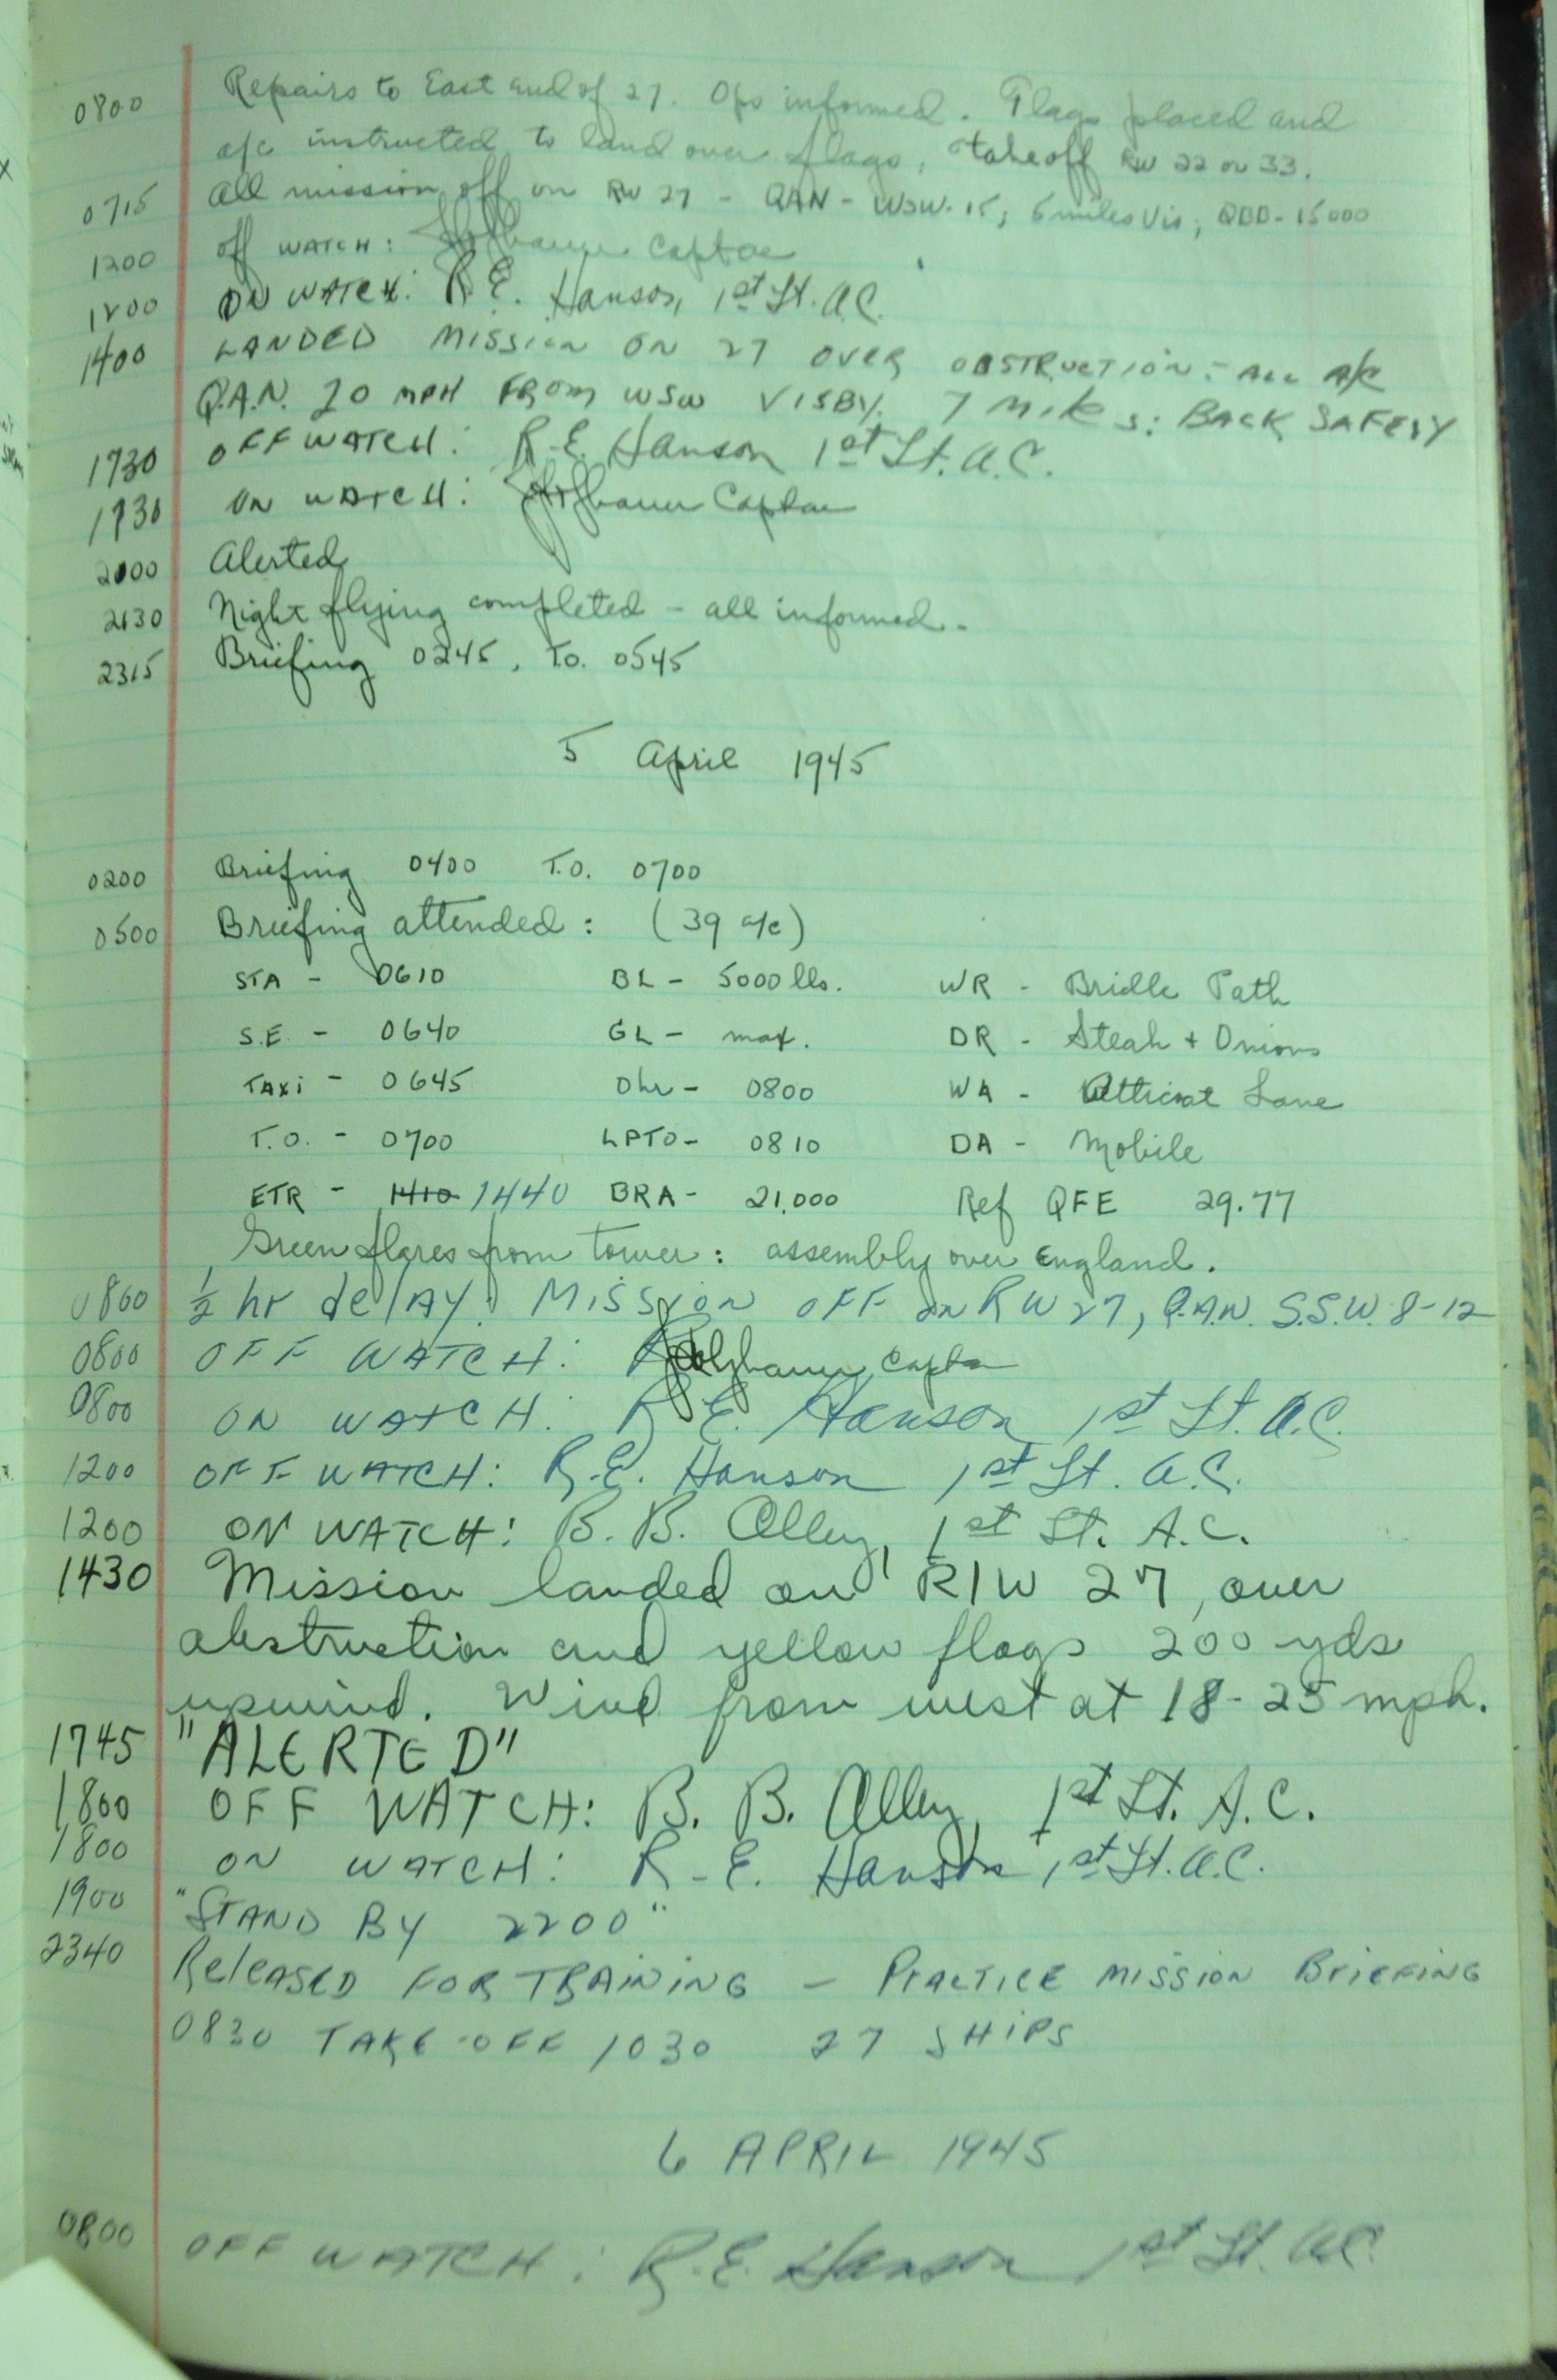 0800 Repairs to East end of 27. Ops informed. Flags placed and
a/c instructed to land over flags, takeoff RW 22 or 33.
0715 All mission off on RW 27 - QAN - WSW-15; 6 miles Vis; QBB-15000
1200 off WATCH: Captac
1200 ON WATCH: R.E. Hanson, 1st Lt. A.C.
1400 LANDED MISSION ON 27 OVER OBSTRUCTION - ALL A/C
Q.A.N. 20 MPH FROM WSW VISBY. 7 MILES: BACK SAFELY
1730 OFF WATCH: R.E. Hanson 1st Lt. A.C.
1730 ON WATCH: Captac
2000 Alerted
2130 Night flying completed - all informed.
2315 Briefing 0245, T.O. 0545
5 April 1945
0200 Briefing 0400 T.O. 0700
0500 Briefing attended: (39 a/c)
STA - 0610 BL - 5000 lbs. WR - Bridle Path
S.E. - 0640 GL - max. DR - Steak + Onions
TAXI - 0645 Ohr - 0800 WA - Lane
T.O. - 0700 LPTO - 0810 DA - Mobile
ETR - 1410 1440 BRA - 21,000 Ref QFE 29.77
Green flares from tower: assembly over England.
0800 1/2 hr delAY. MISSION OFF ON RW 27, Q.A.N. S.S.W. 8-12
0800 OFF WATCH: Captac
0800 ON WATCH: R E. Hanson 1st Lt. A.C.
1200 OFF WATCH: R.E. Hanson 1st Lt. A.C.
1200 ON WATCH: B. B. Alley, 1st Lt. A.C.
1430 Mission landed on R/W 27, over
obstruction and yellow flags 200 yds
upwind. Wind from west at 18-25 mph.
1745 "ALERTED"
1800 OFF WATCH: B. B. Alley, 1st Lt. A.C.
1800 ON WATCH: R.E. Hanson 1st Lt. A.C.
1900 "STAND BY 2200"
2340 Released FOR TRAINING - PRACTICE MISSION BRIEFING
0830 TAKE-OFF 1030 27 SHIPS
6 APRIL 1945
0800 OFF WATCH: R.E. Hanson 1st Lt. A.C.